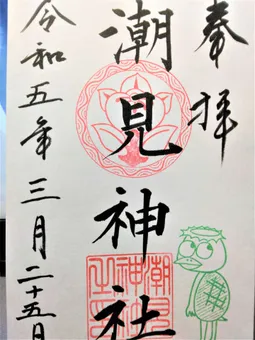 奉拝
潮見神社
令和五年三月二十五日
潮見神社之印